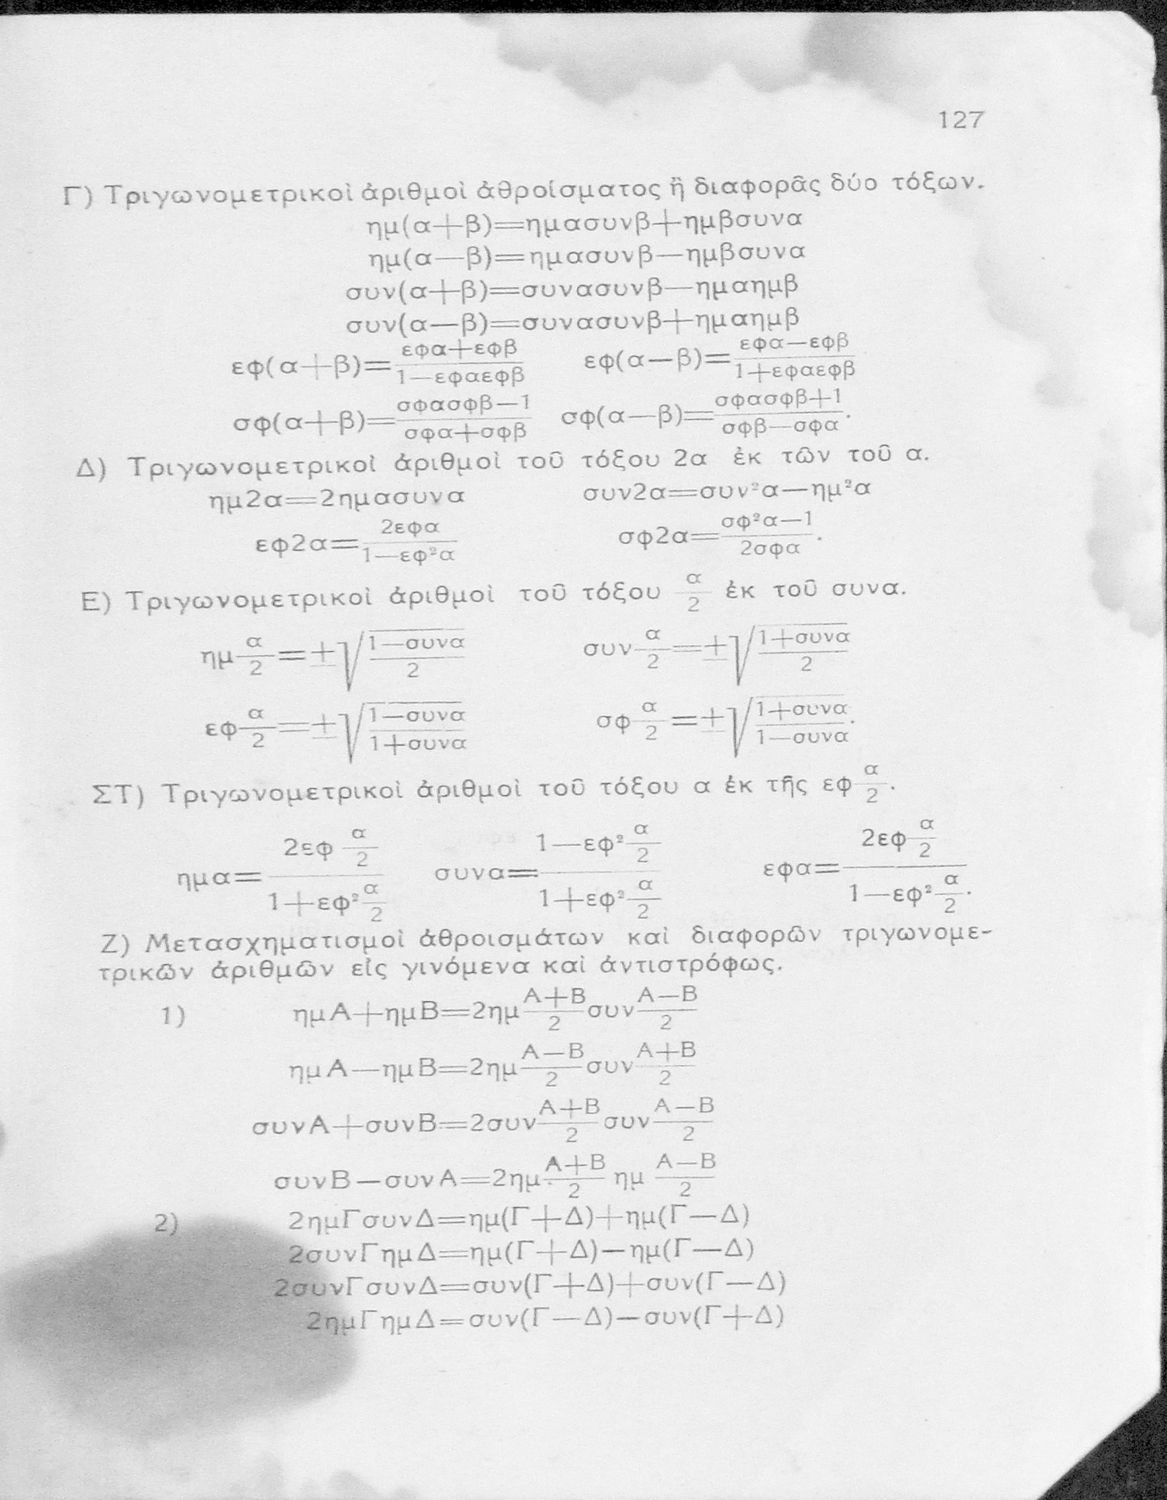 127
Γ) Τριγωνομετρικοὶ ἀριθμοὶ ἀθροίσματος ἢ διαφορᾶς δύο τόξων.
ημ(α+β)=ημασυνβ+ημβσυνα
ημ(α—β)=ημασυνβ—ημβσυνα
συν(α+β)=συνασυνβ—ημαημβ
συν(α—β)=συνασυνβ+ημαημβ
εφ(α+β)=\frac{εφα+εφβ}{1—εφαεφβ} εφ(α—β)=\frac{εφα—εφβ}{1+εφαεφβ}
σφ(α+β)=\frac{σφασφβ—1}{σφα+σφβ} σφ(α—β)=\frac{σφασφβ+1}{σφβ—σφα}.
Δ) Τριγωνομετρικοὶ ἀριθμοὶ τοῦ τόξου 2α ἐκ τῶν τοῦ α.
ημ2α=2ημασυνα συν2α=συν²α—ημ²α
εφ2α=\frac{2εφα}{1—εφ²α} σφ2α=\frac{σφ²α—1}{2σφα}.
Ε) Τριγωνομετρικοὶ ἀριθμοὶ τοῦ τόξου \frac{α}{2} ἐκ τοῦ συνα.
ημ\frac{α}{2}=±\sqrt{\frac{1—συνα}{2}} συν\frac{α}{2}=±\sqrt{\frac{1+συνα}{2}}
εφ\frac{α}{2}=±\sqrt{\frac{1—συνα}{1+συνα}} σφ\frac{α}{2}=±\sqrt{\frac{1+συνα}{1—συνα}}.
ΣΤ) Τριγωνομετρικοὶ ἀριθμοὶ τοῦ τόξου α ἐκ τῆς εφ\frac{α}{2}.
ημα=\frac{2εφ\frac{α}{2}}{1+εφ²\frac{α}{2}} συνα=\frac{1—εφ²\frac{α}{2}}{1+εφ²\frac{α}{2}} εφα=\frac{2εφ\frac{α}{2}}{1—εφ²\frac{α}{2}}.
Ζ) Μετασχηματισμοὶ ἀθροισμάτων καὶ διαφορῶν τριγωνομε-
τρικῶν ἀριθμῶν εἰς γινόμενα καὶ ἀντιστρόφως.
1) ημΑ+ημΒ=2ημ\frac{Α+Β}{2}συν\frac{Α—Β}{2}
ημΑ—ημΒ=2ημ\frac{Α—Β}{2}συν\frac{Α+Β}{2}
συνΑ+συνΒ=2συν\frac{Α+Β}{2}συν\frac{Α—Β}{2}
συνΒ—συνΑ=2ημ\frac{Α+Β}{2}ημ\frac{Α—Β}{2}
2) 2ημΓσυνΔ=ημ(Γ+Δ)+ημ(Γ—Δ)
2συνΓημΔ=ημ(Γ+Δ)—ημ(Γ—Δ)
2συνΓσυνΔ=συν(Γ+Δ)+συν(Γ—Δ)
2ημΓημΔ=συν(Γ—Δ)—συν(Γ+Δ)